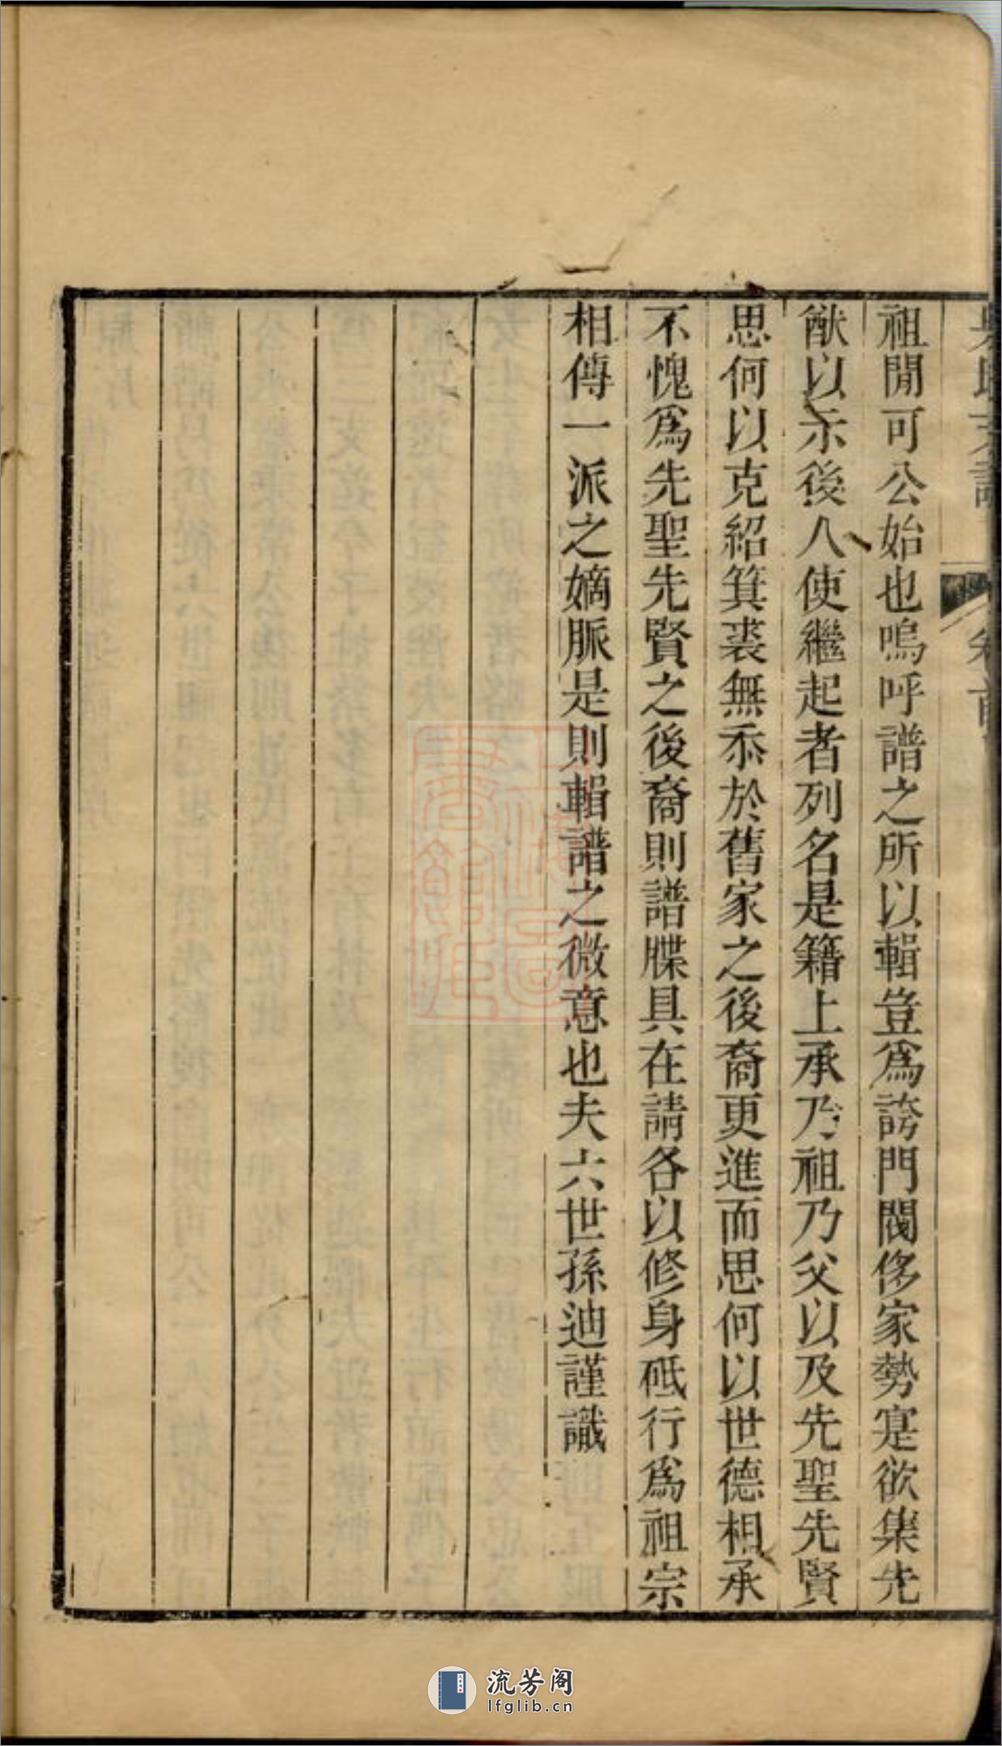 吳氏支譜 卷首
祖閒可公始也嗚呼譜之所以輯豈爲誇門閥侈家勢寔欲集先
猷以示後人使繼起者列名是籍上承乃祖乃父以及先聖先賢
思何以克紹箕裘無忝於舊家之後裔更進而思何以世德相承
不愧爲先聖先賢之後裔則譜牒具在請各以修身砥行爲祖宗
相傳一派之嫡脈是則輯譜之微意也夫六世孫迪謹識
流芳阁
lfglib.cn